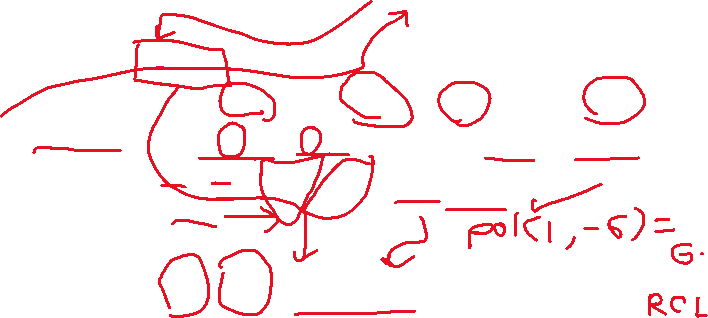 pol(1,-6)=
G.
RCL